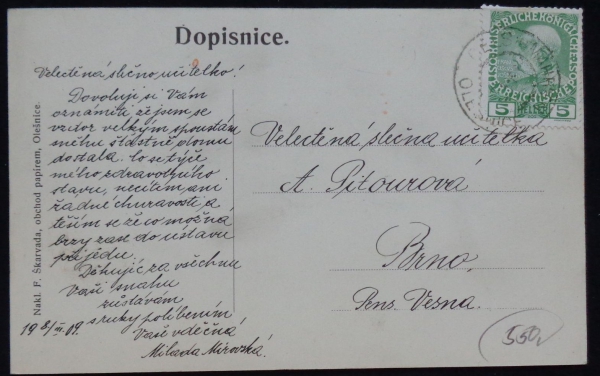 Dopisnice.
Velectěná slečno učitelko!
Dovoluji si Vám
oznámiti že jsem se
vzdor velkým spoustám
sněhu šťastně domu
dostala. Co se týče
mého zdravotního
stavu, necítím ani
žádné churavosti, a
těším se že co možná
brzy zas do ústavu
přijedu.
Děkujíc za všechnu
Vaši snahu
zůstávám
s ruky políbením
Vaše vděčná
Milada Mirovská.
19 8/III. 09.
Velectěná slečna učitelka
A. Pitourová
Brno,
Pens. Vesna.
Nakl. F. Škarvada, obchod papírem, Olešnice.
5 5
550,